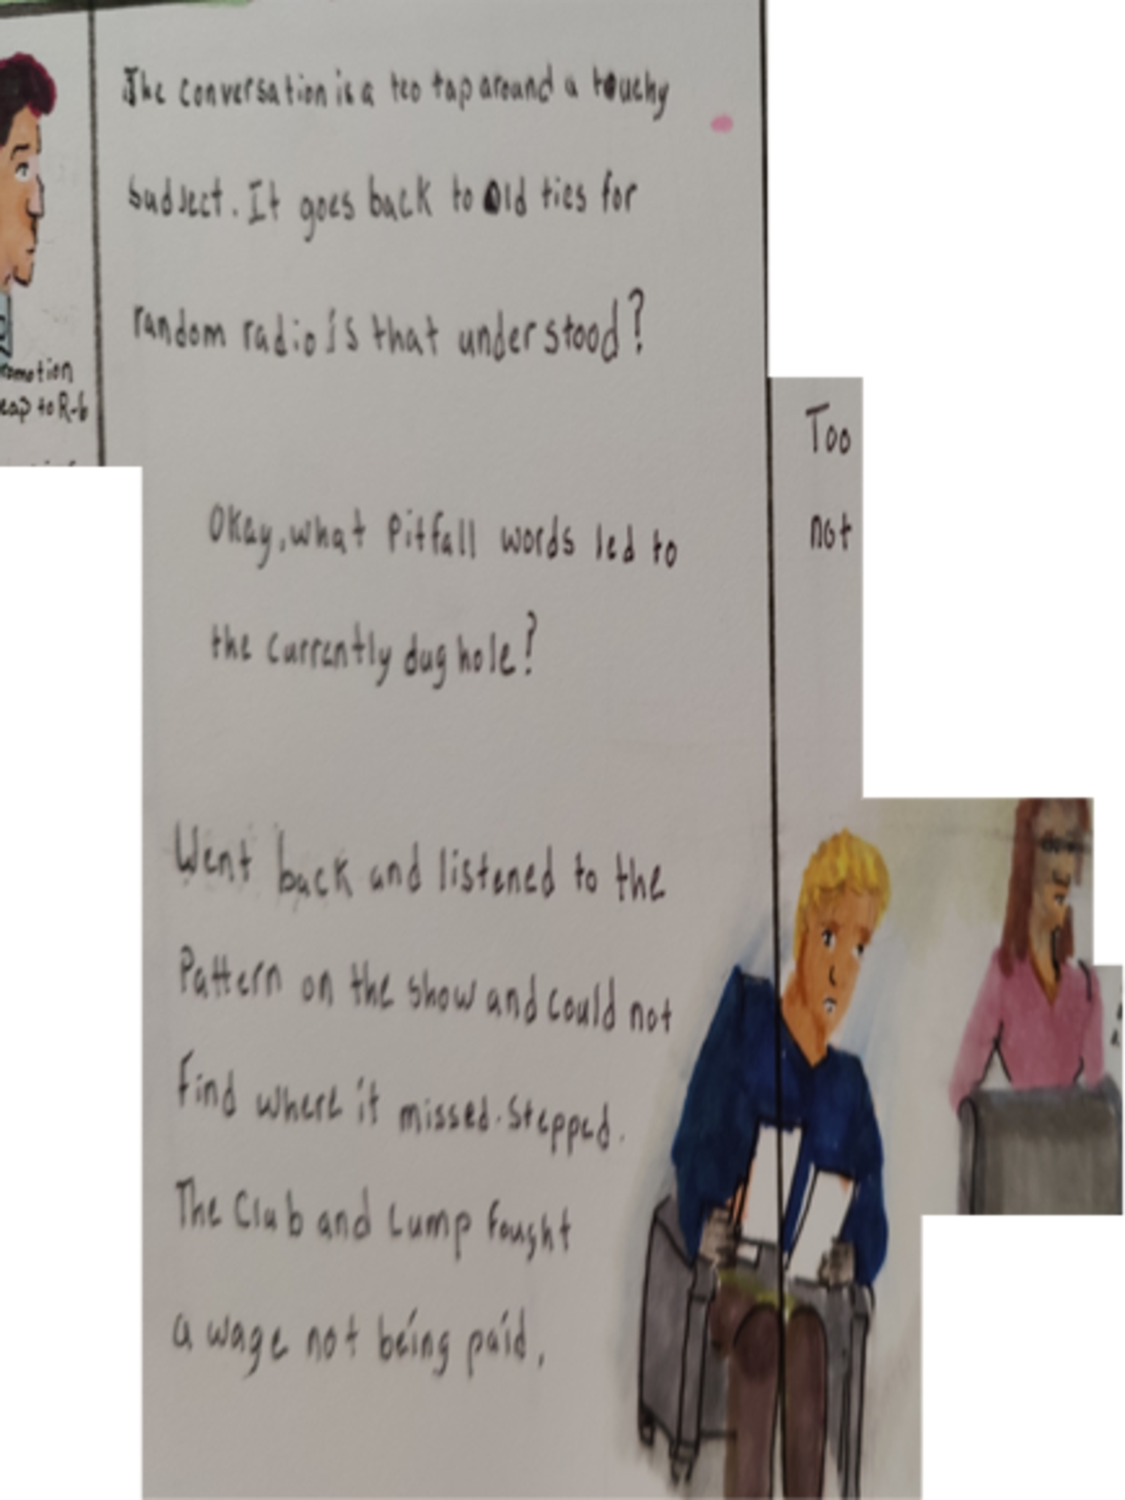 The conversation is a teo tap around a touchy
sudject. It goes back to old ties for
random radio is that understood?
Okay, what Pitfall words led to
the currently dug hole?
Went back and listened to the
Pattern on the show and could not
find where it missed. Stepped.
The Club and Lump fought
a wage not being paid,
omotion
eap to R-6
Too
not